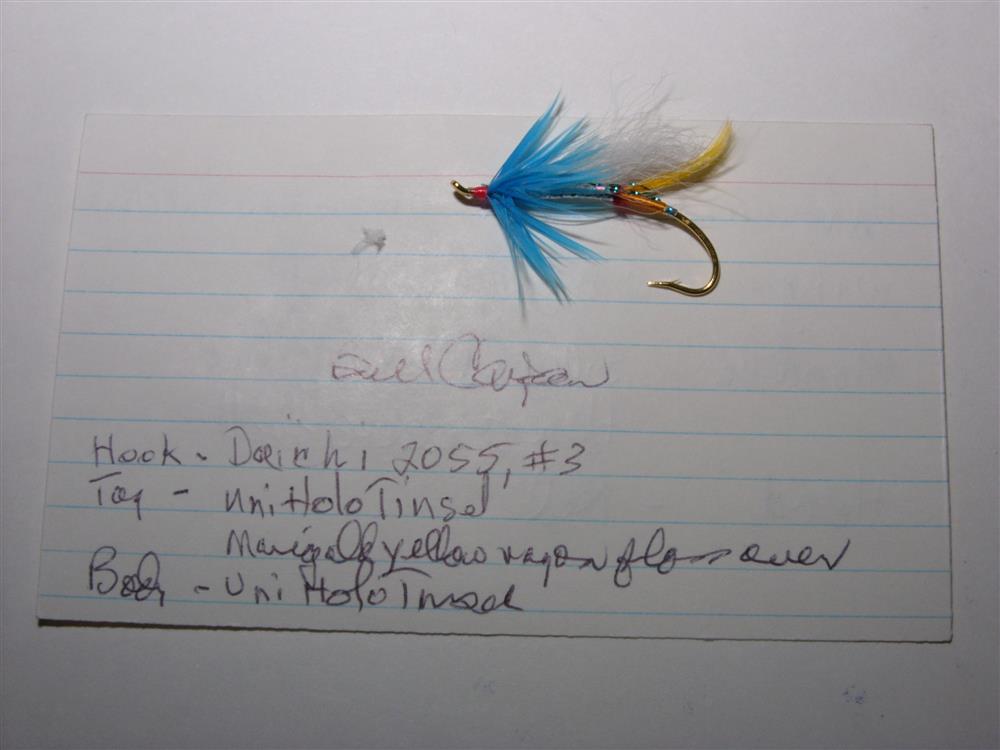 Hook - Daiichi 2055, #3
Tag - Uni Holo Tinsel
Marigold yellow rayon floss over
Body - Uni Holo Tinsel